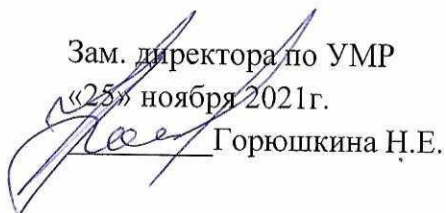 Зам. директора по УМР
«25» ноября 2021г.
Горюшкина Н.Е.